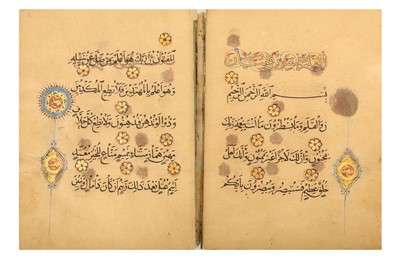 بسم الله الرحمن الرحيم
ن والقلم وما يسطرون ما أنت بنعمة ربك
بمجنون وإن لك لأجرا غير ممنون وإنك لعلى
خلق عظيم فستبصر ويبصرون بأيكم
المفتون إن ربك هو أعلم بمن ضل عن سبيله
وهو أعلم بالمهتدين فلا تطع المكذبين
ودوا لو تدهن فيدهنون ولا تطع كل حلاف
مهين هماز مشاء بنميم مناع للخير معتد
أثيم عتل بعد ذلك زنيم أن كان ذا مال وبنين